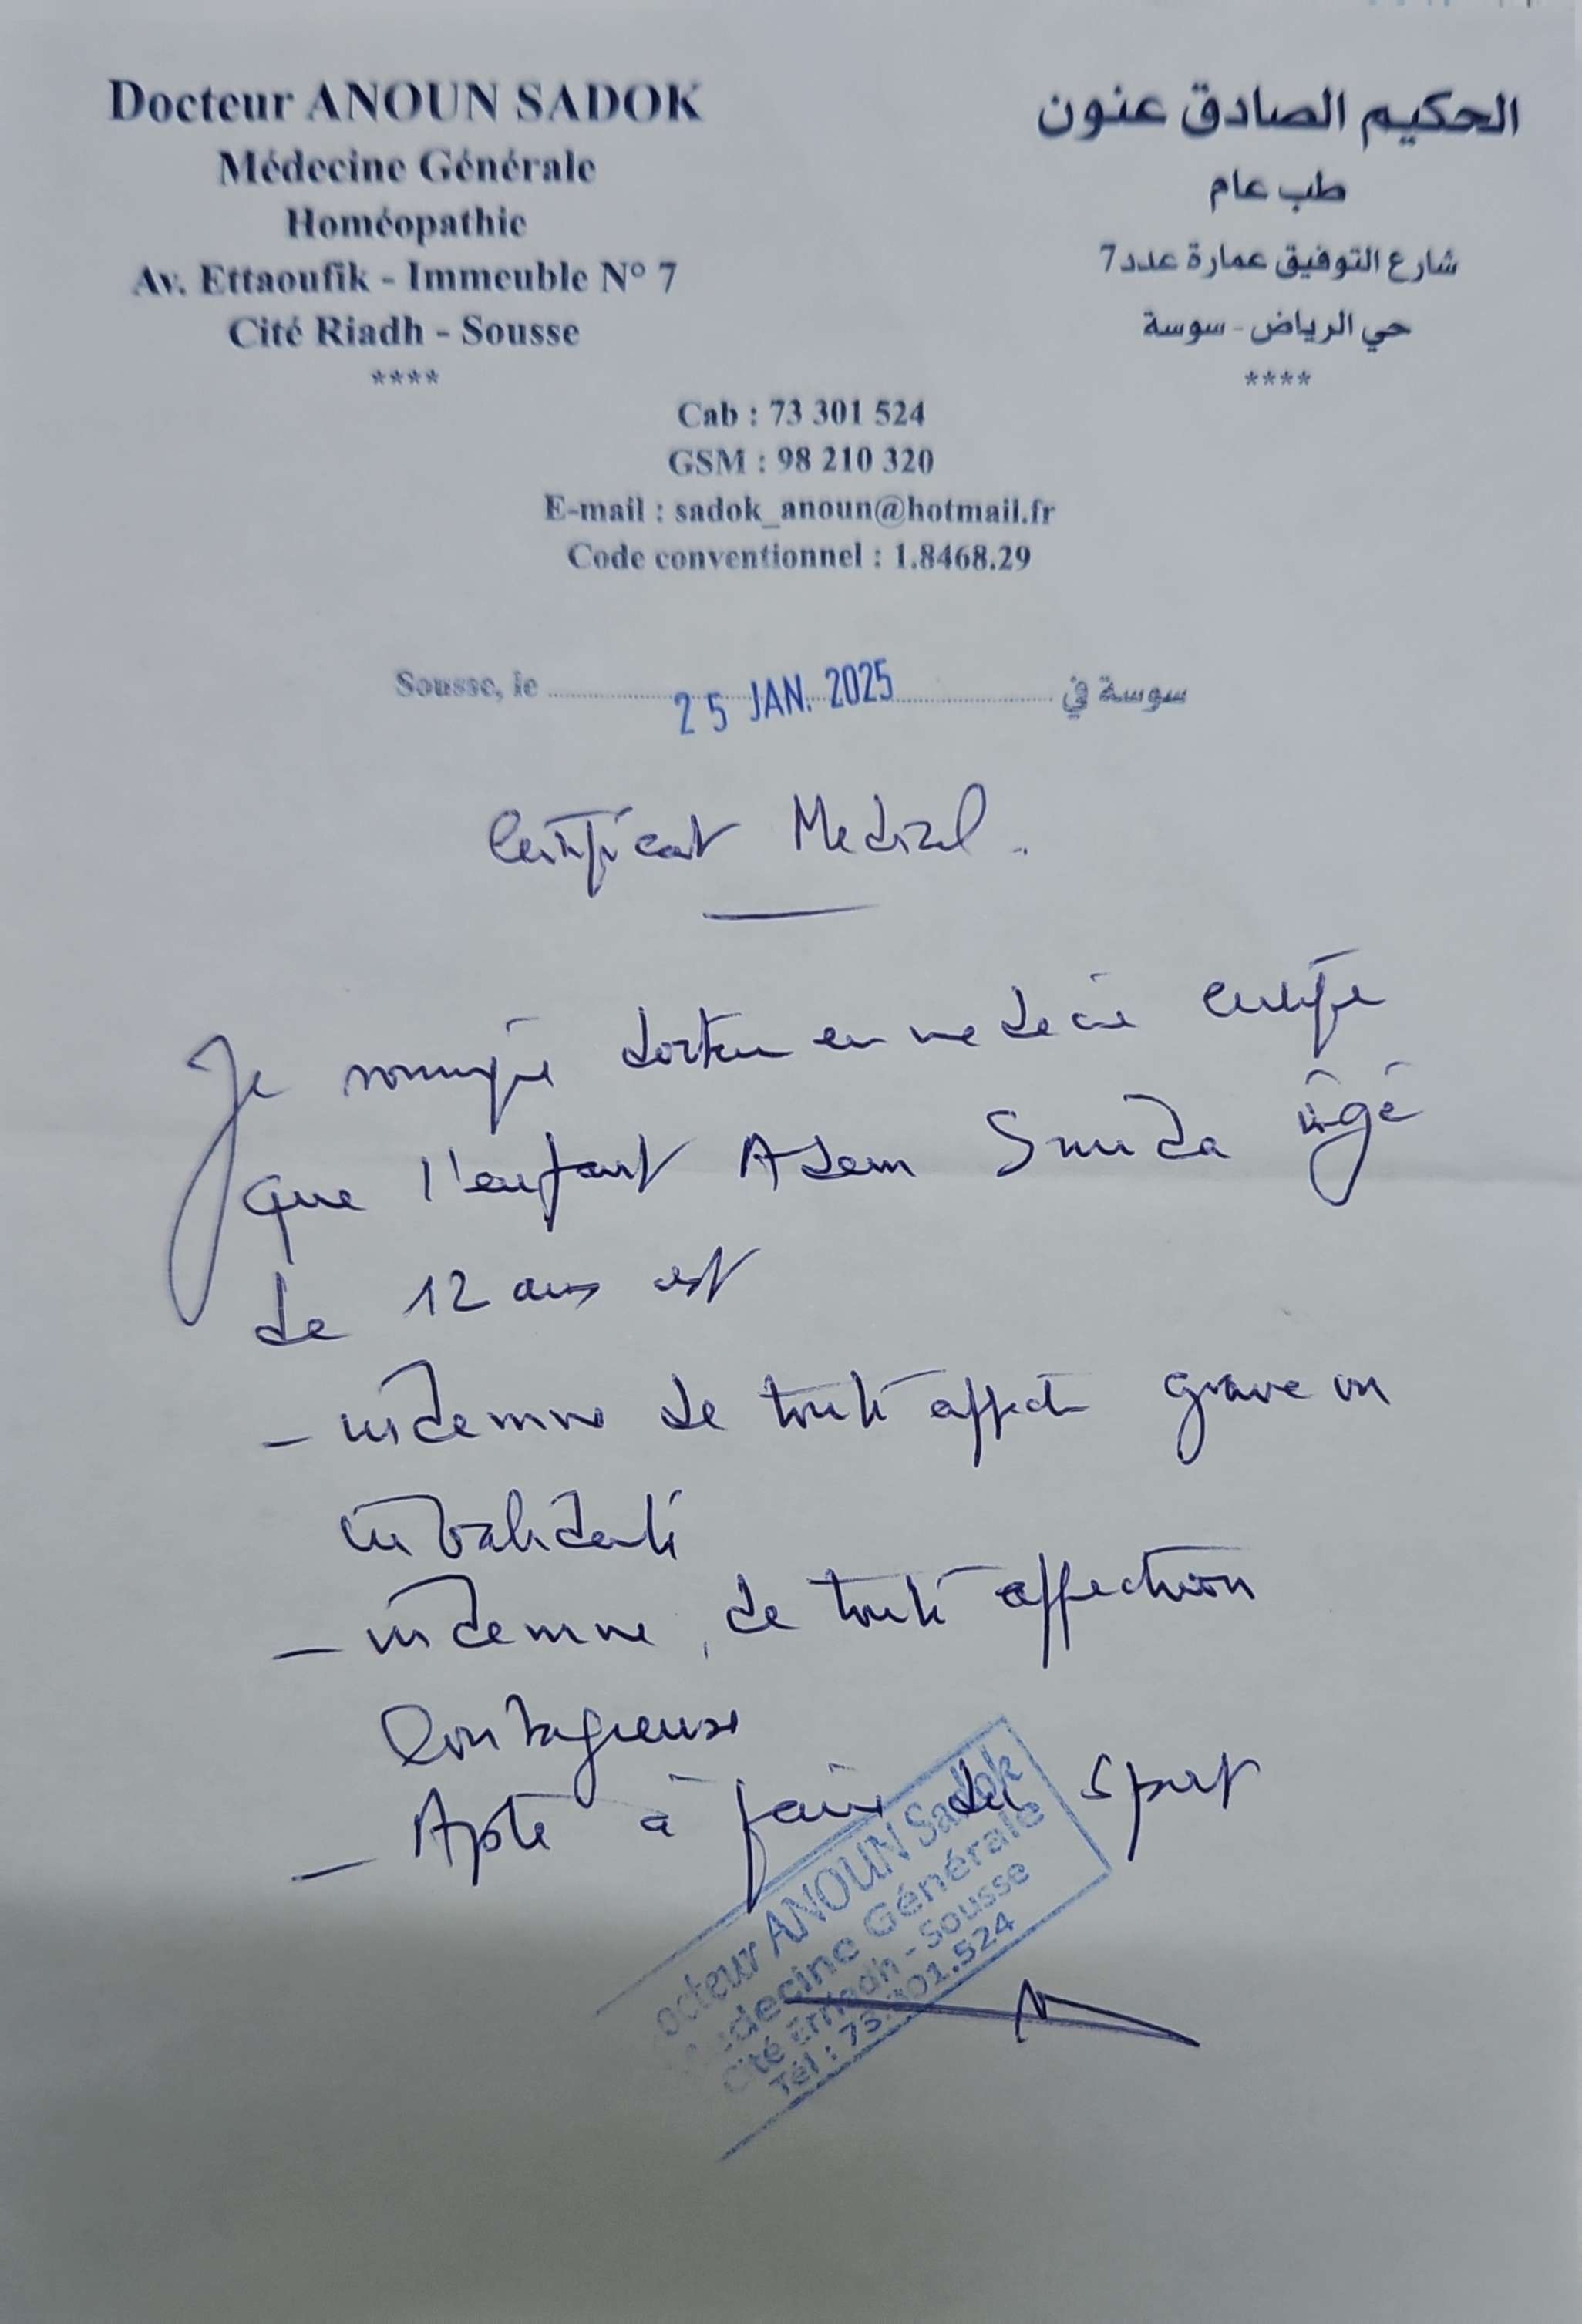 Docteur ANOUN SADOK
Médecine Générale
Homéopathie
Av. Ettaoufik - Immeuble N° 7
Cité Riadh - Sousse
****
الحكيم الصادق عنون
طب عام
شارع التوفيق عمارة عدد 7
حي الرياض - سوسة
****
Cab : 73 301 524
GSM : 98 210 320
E-mail : sadok_anoun@hotmail.fr
Code conventionnel : 1.8468.29
Sousse, le 25 JAN. 2025 سوسة في
Certificat Medical.
Je soussigné docteur en medecine certifie
que l'enfant Asem Smida âgé
de 12 ans est
- indemne de toute affection grave ou
invalidante
- indemne de toute affection
Contagieuse
- Apte à faire du sport
octeur ANOUN Sadok
decine Générale
Cité Erriadh - Sousse
Tél : 73.301.524